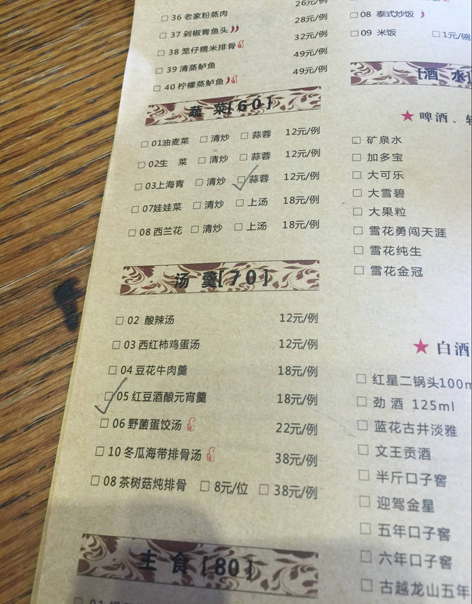 26元/例
36 老家粉蒸肉 28元/例
37 剁椒青鱼头 32元/例
38 笼仔糯米排骨 49元/例
39 清蒸鲈鱼 49元/例
40 柠檬蒸鲈鱼
蔬 菜[60]
01油麦菜 清炒 蒜蓉 12元/例
02生 菜 清炒 蒜蓉 12元/例
03上海青 清炒 蒜蓉 12元/例
07娃娃菜 清炒 上汤 18元/例
08西兰花 清炒 上汤 18元/例
汤 羹[70]
02 酸辣汤 12元/例
03 西红柿鸡蛋汤 12元/例
04 豆花牛肉羹 18元/例
05 红豆酒酿元宵羹 18元/例
06 野菌蛋饺汤 22元/例
10 冬瓜海带排骨汤 38元/例
08 茶树菇炖排骨 8元/位 38元/例
主 食[80]
08 泰式炒饭
09 米饭 1元/碗
[酒 水
★ 啤酒、
矿泉水
加多宝
大可乐
大雪碧
大果粒
雪花勇闯天涯
雪花纯生
雪花金冠
★ 白酒
红星二锅头100m
劲 酒 125ml
蓝花古井淡雅
文王贡酒
半斤口子窖
迎驾金星
五年口子窖
六年口子窖
古越龙山五年